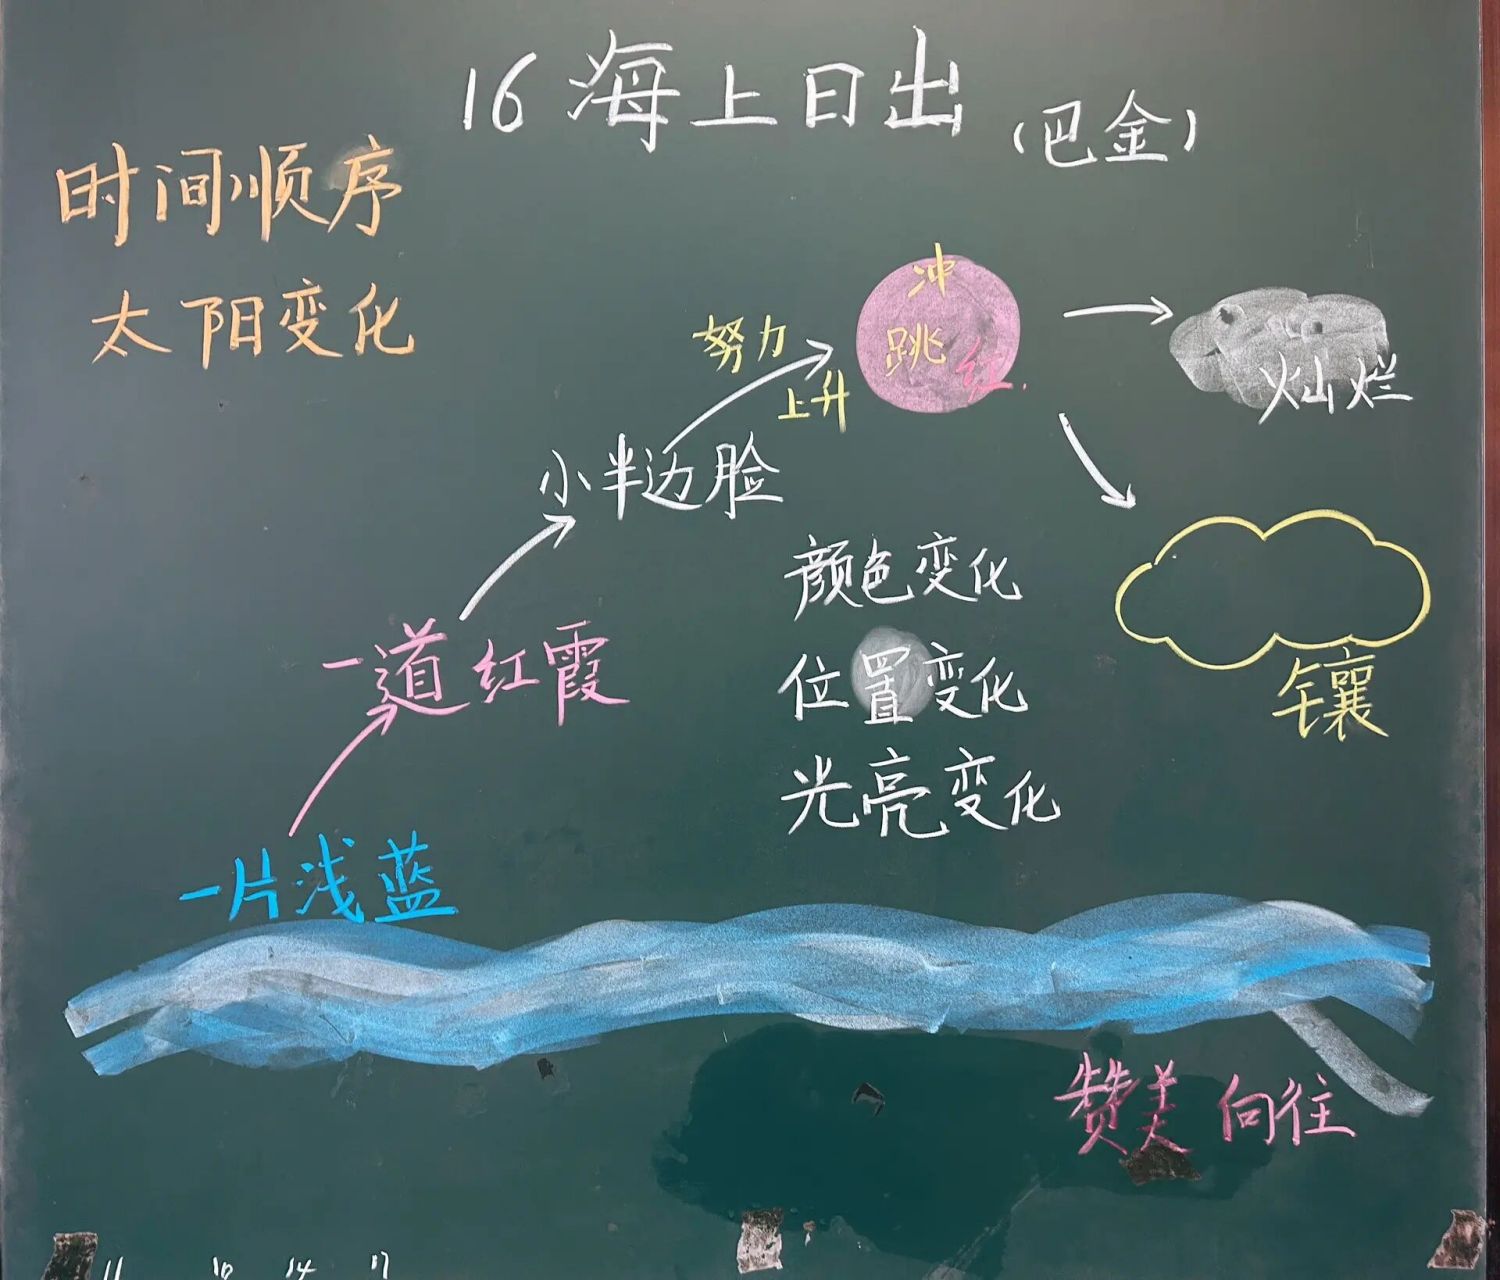 16 海上日出 (巴金)
时间顺序
太阳变化
冲
跳
红.
努力
上升
灿烂
小半边脸
颜色变化
一道红霞
位置变化
镶
光亮变化
一片浅蓝
赞美 向往